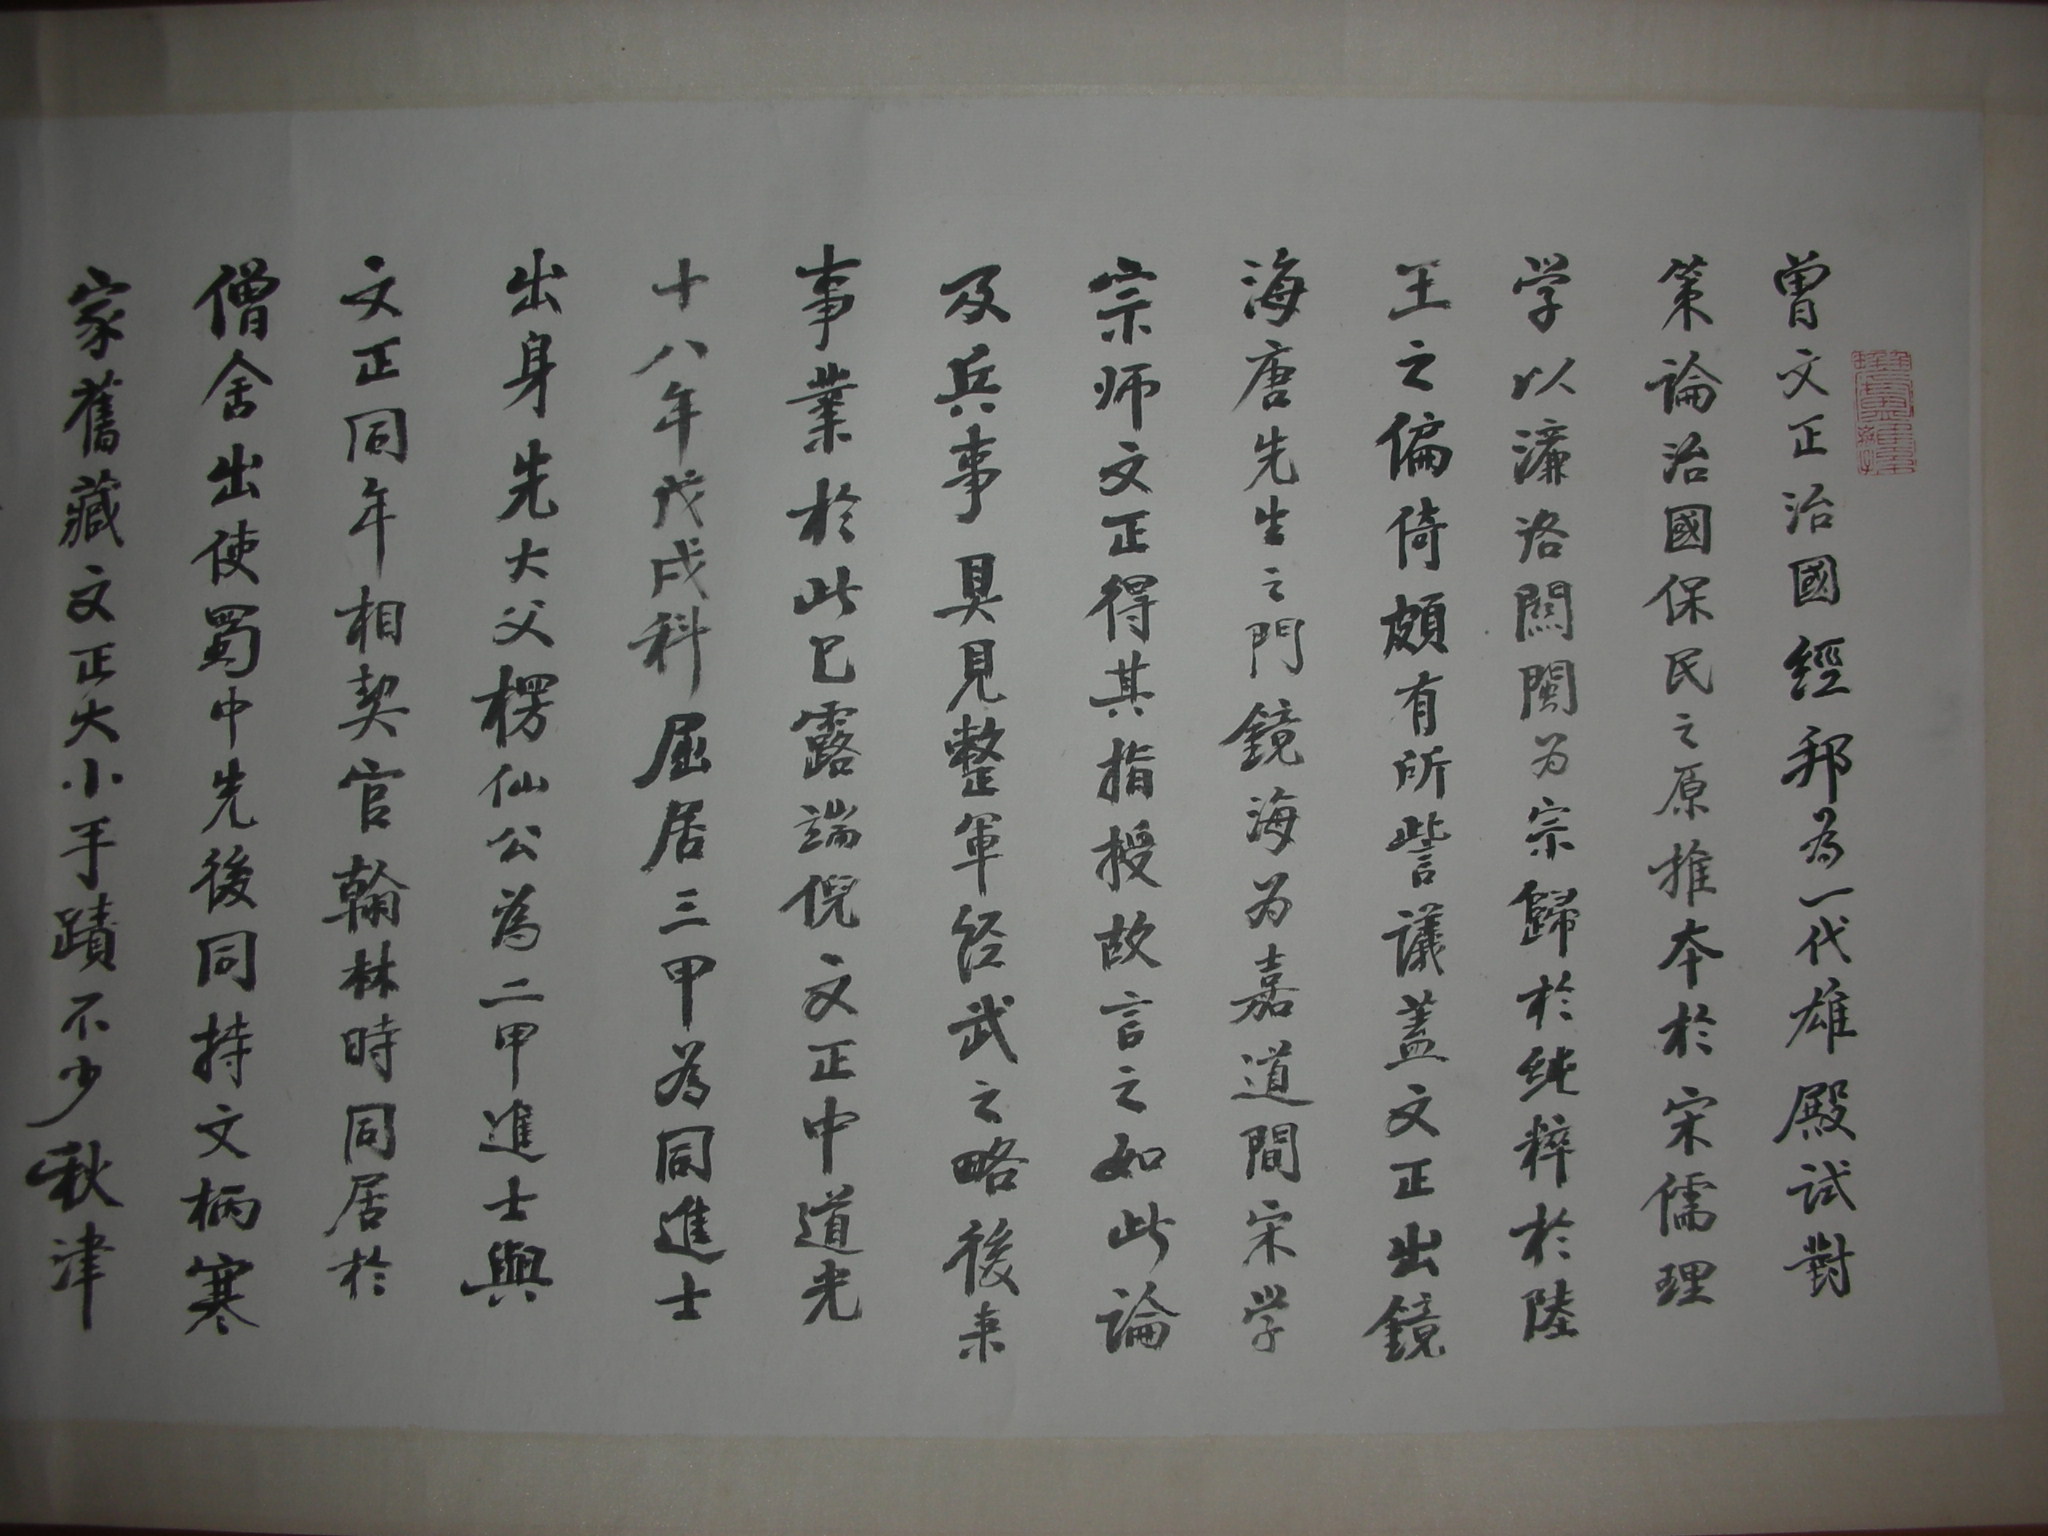 曾文正治國經邦為一代雄殿試對
策論治國保民之原推本於宋儒理
学以濂洛關閩为宗歸於純粹於陸
王之偏倚頗有所訾議蓋文正出鏡
海唐先生之門鏡海为嘉道間宋学
宗师文正得其指授故言之如此論
及兵事具見整軍经武之略後来
事業於此已露端倪文正中道光
十八年戊戌科屈居三甲為同進士
出身先大父楞仙公為二甲進士與
文正同年相契官翰林時同居於
僧舍出使蜀中先後同持文柄寒
家舊藏文正大小手蹟不少秋津